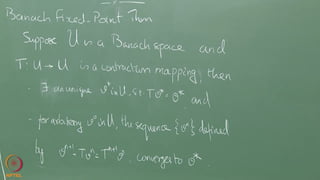 Banach Fixed-Point Thm
Suppose U is a Banach space and
T: U → U is a contraction mapping, then
· ∃ an unique v* in U, s.t. Tv* = v*, and
- for arbitrary v⁰ in U, the sequence {vⁿ} defined
by vⁿ⁺¹ = Tvⁿ = Tⁿ⁺¹v⁰, converges to v*.
NPTEL